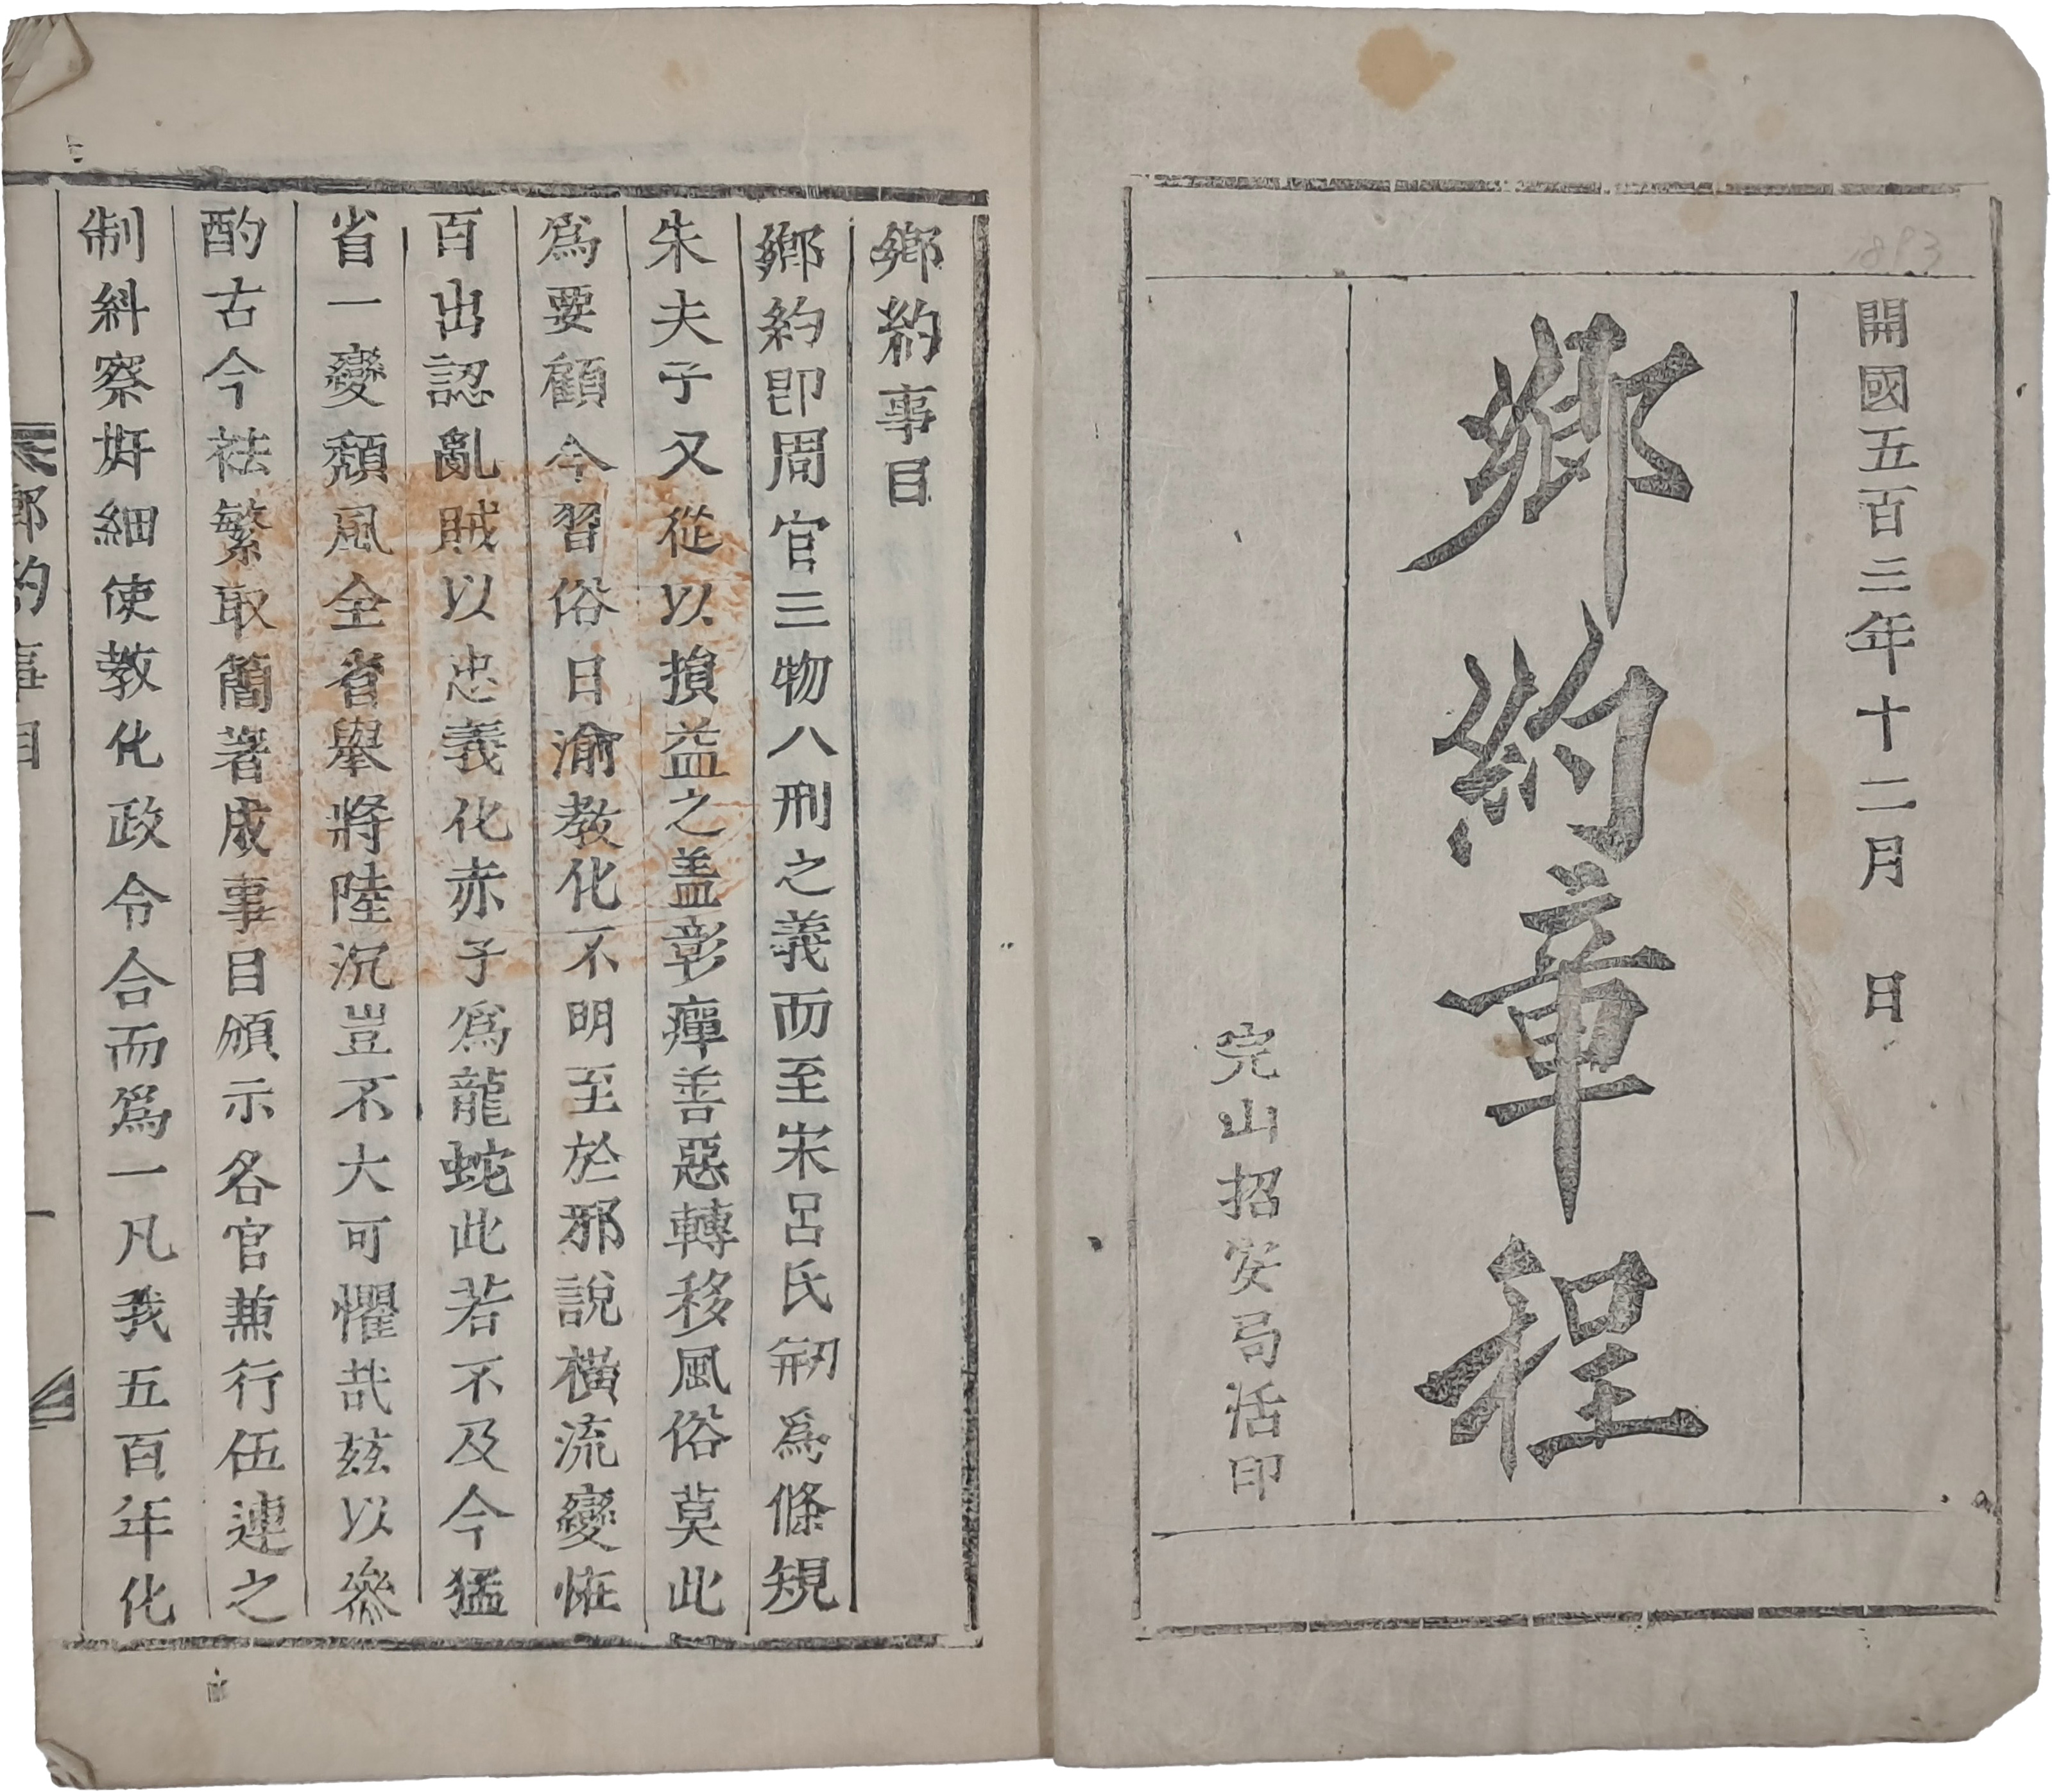 1893
開國五百三年十二月 日
鄕約章程
完山招安局活印
鄕約事目
鄕約卽周官三物八刑之義而至宋呂氏刱爲條規
朱夫子又從以損益之盖彰癉善惡轉移風俗莫此
爲要顧今習俗日渝敎化不明至於邪說橫流變恠
百出認亂賊以忠義化赤子爲龍蛇此若不及今猛
省一變頹風全省擧將陸沉豈不大可懼哉玆以參
酌古今祛繁取簡著成事目頒示各官兼行伍連之
制糾察奸細使敎化政令合而爲一凡我五百年化
鄕約事目
一